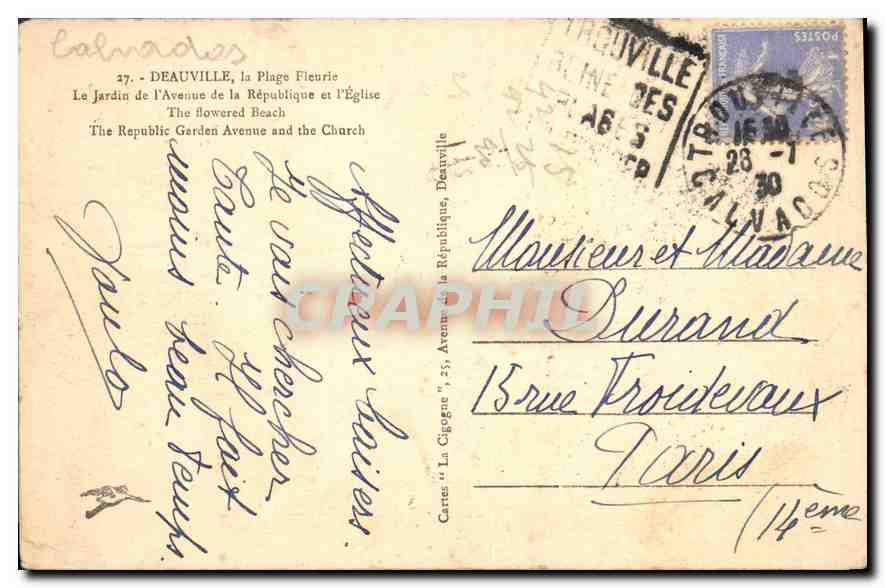 Calvados
27. - DEAUVILLE, la Plage Fleurie
Le Jardin de l'Avenue de la République et l'Église
The flowered Beach
The Republic Garden Avenue and the Church
Affectueux baisers.
Je vais chercher
Tante. Il fait
moins beau temps.
Cartes "La Cigogne", 25, Avenue de la République, Deauville
TROUVILLE
REINE DES
PLAGES
POSTES
TROUVILLE
16 30
28 -1
30
CALVADOS
Monsieur et Madame
Durand
15 rue Froidevaux
Paris
(14ème
CPAPHIL